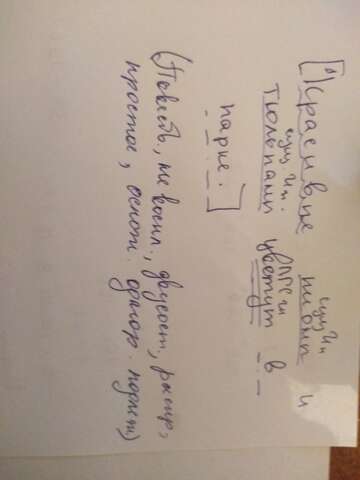 сущ Ип
Красивые пионы и
сущ Ип. гл
тюльпаны цветут в
парке.]
(Повеств., не воскл., двусост., распр.,
простое, ослож. однор. подлеж)